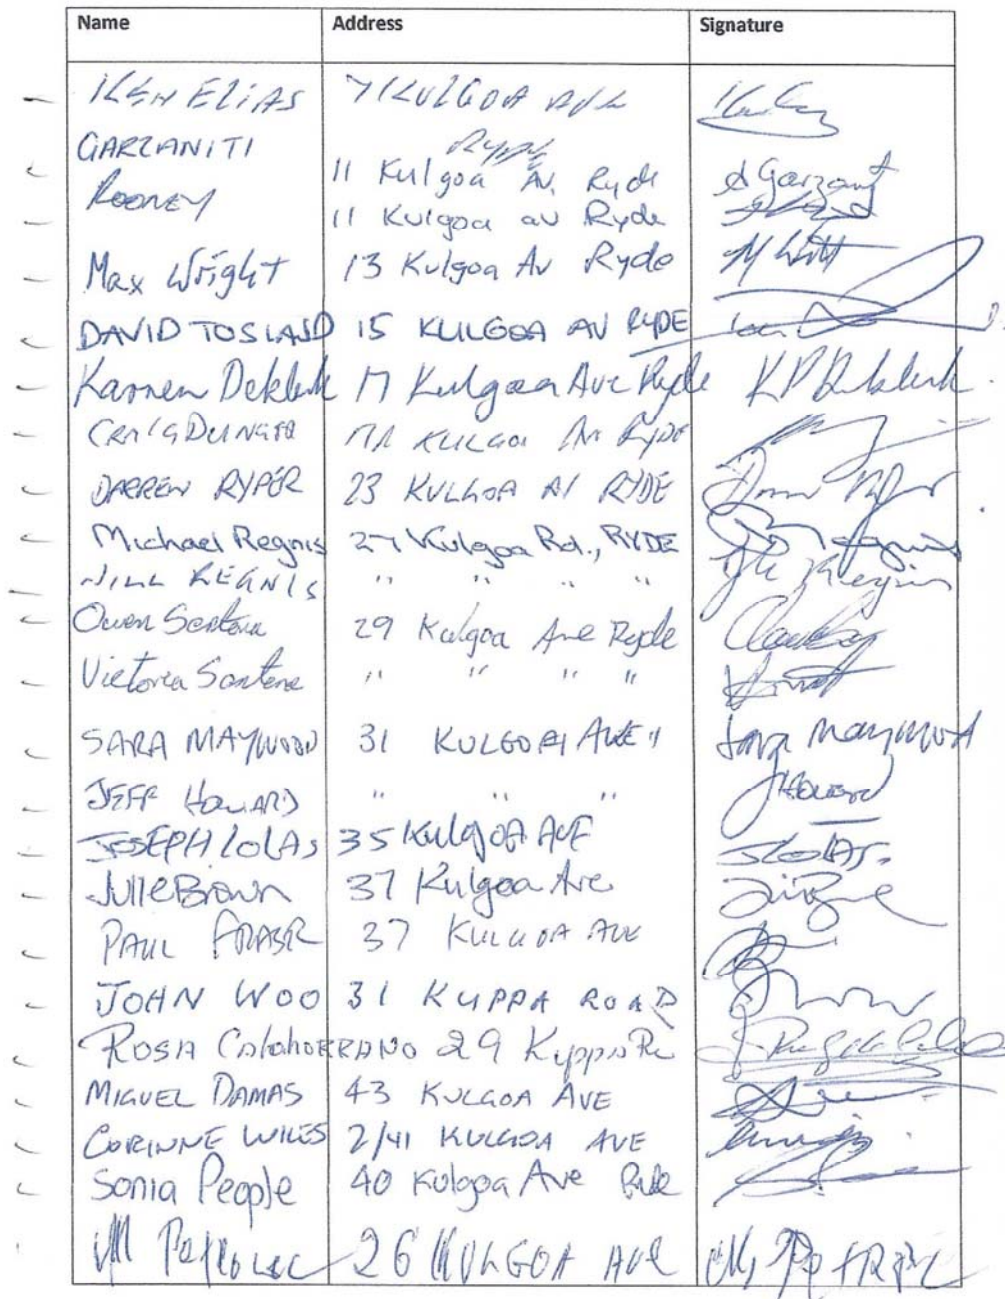 Name Address Signature
KEN ELIAS 7 KULGOA AVE
Ryde
GARZANITI 11 Kulgoa Av. Ryde A Garzanit
ROONEY 11 Kulgoa av Ryde
Max Wright 13 Kulgoa Av Ryde
DAVID TOSLAND 15 KULGOA AV RYDE
Karren Deklerk 17 Kulgoa Ave Ryde KP Deklerk
CRAIG KULGOA AV RYDE
DARREN RYPER 23 KULGOA AV RYDE
Michael Regnis 27 Kulgoa Rd., RYDE
JILL REGNIS " " " "
Owen Santana 29 Kulgoa Ave Ryde
Victoria Santana " " " "
SARA MAYWOOD 31 KULGOA AVE " Sara Maywood
JEFF HOWARD " " " JHoward
JOSEPH LOLAS 35 KULGOA AVE JLOLAS.
JULIE Brown 37 Kulgoa Ave
PAUL FRASER 37 KULGOA AVE
JOHN WOO 31 KUPPA ROAD
ROSA CALAHORRANO 29 Kyppa Rd
MIGUEL DAMAS 43 KULGOA AVE
CORINNE WILES 2/41 KULGOA AVE
Sonia People 40 Kulgoa Ave Ryde
M 26 KULGOA AVE